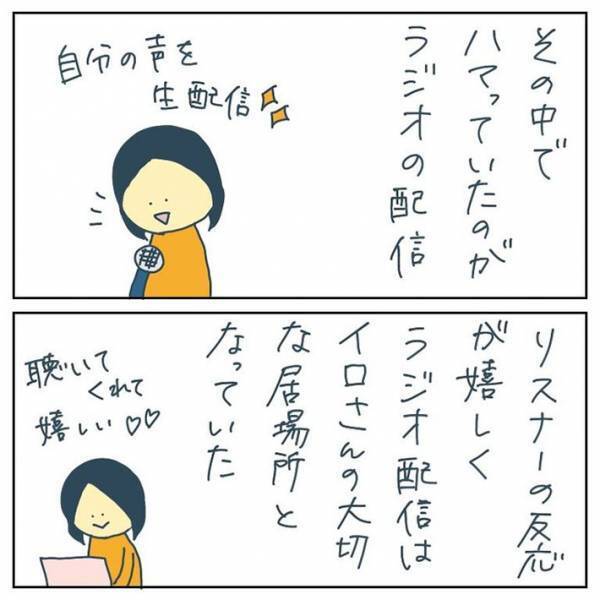 その中で
ハマっていたのが
ラジオの配信
自分の声を
生配信
リスナーの反応
が嬉しく
ラジオ配信は
イロさんの大切
な居場所と
なっていた
聴いて
くれて
嬉しい♡♡